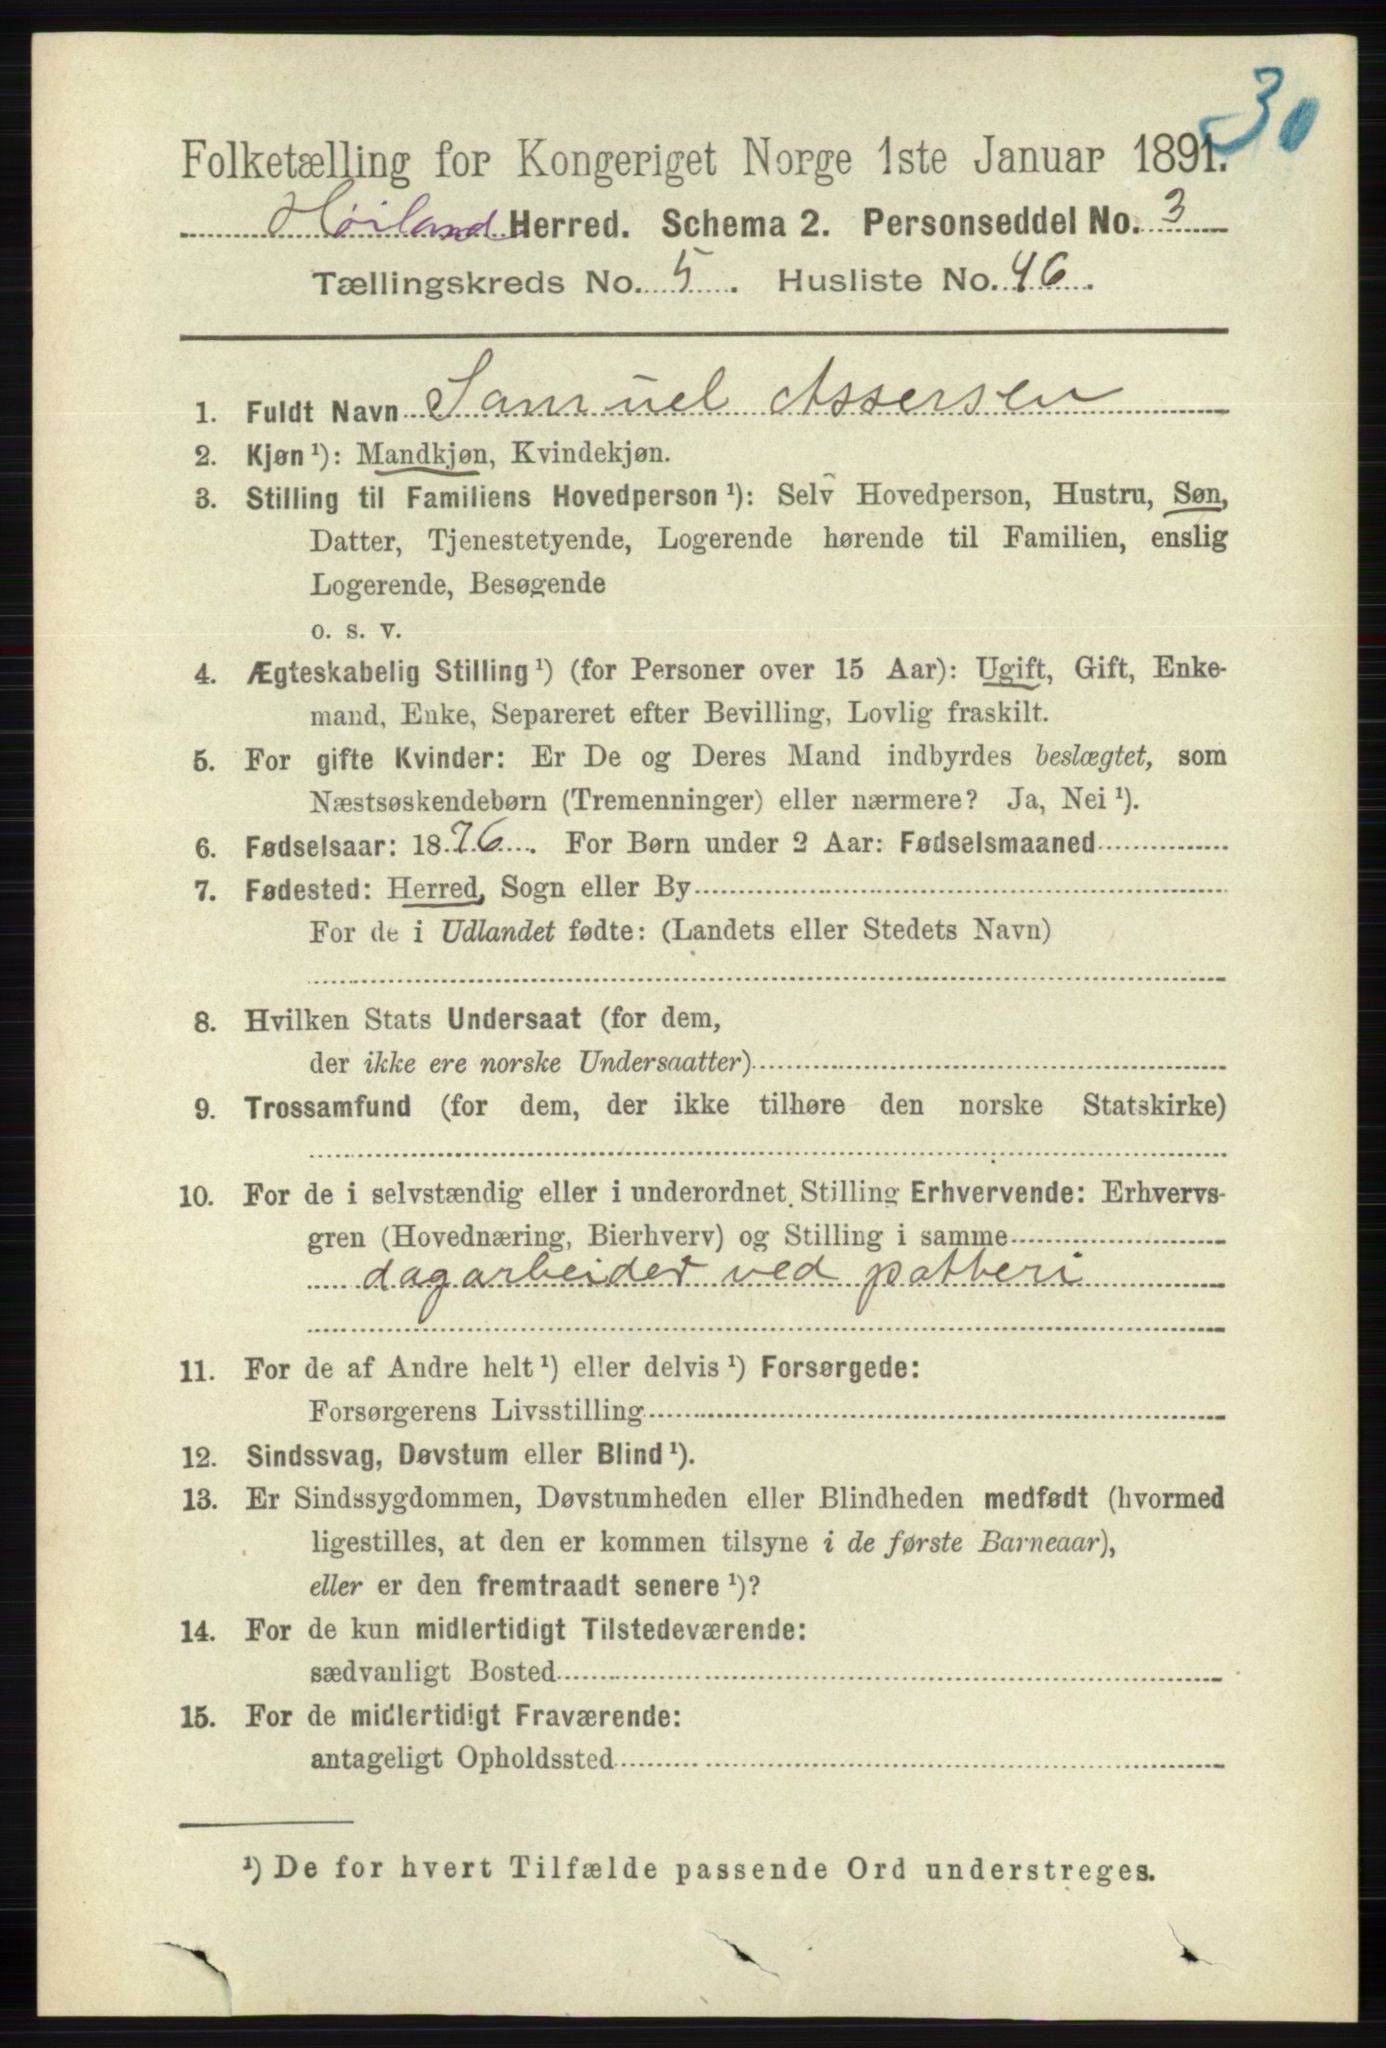 30
Folketælling for Kongeriget Norge 1ste Januar 1891.
Høiland Herred. Schema 2. Personseddel No. 3
Tællingskreds No. 5. Husliste No. 46.
1. Fuldt Navn Samuel Assersen
2. Kjøn ¹): Mandkjøn, Kvindekjøn.
3. Stilling til Familiens Hovedperson ¹): Selv Hovedperson, Hustru, Søn,
Datter, Tjenestetyende, Logerende hørende til Familien, enslig
Logerende, Besøgende
o. s. v.
4. Ægteskabelig Stilling ¹) (for Personer over 15 Aar): Ugift, Gift, Enke-
mand, Enke, Separeret efter Bevilling, Lovlig fraskilt.
5. For gifte Kvinder: Er De og Deres Mand indbyrdes beslægtet, som
Næstsøskendebørn (Tremenninger) eller nærmere? Ja, Nei ¹).
6. Fødselsaar: 1876. For Børn under 2 Aar: Fødselsmaaned
7. Fødested: Herred, Sogn eller By
For de i Udlandet fødte: (Landets eller Stedets Navn)
8. Hvilken Stats Undersaat (for dem,
der ikke ere norske Undersaatter)
9. Trossamfund (for dem, der ikke tilhøre den norske Statskirke)
10. For de i selvstændig eller i underordnet Stilling Erhvervende: Erhvervs-
gren (Hovednæring, Bierhverv) og Stilling i samme
dagarbeider ved potteri
11. For de af Andre helt ¹) eller delvis ¹) Forsørgede:
Forsørgerens Livsstilling
12. Sindssvag, Døvstum eller Blind ¹).
13. Er Sindssygdommen, Døvstumheden eller Blindheden medfødt (hvormed
ligestilles, at den er kommen tilsyne i de første Barneaar),
eller er den fremtraadt senere ¹)?
14. For de kun midlertidigt Tilstedeværende:
sædvanligt Bosted
15. For de midlertidigt Fraværende:
antageligt Opholdssted
¹) De for hvert Tilfælde passende Ord understreges.